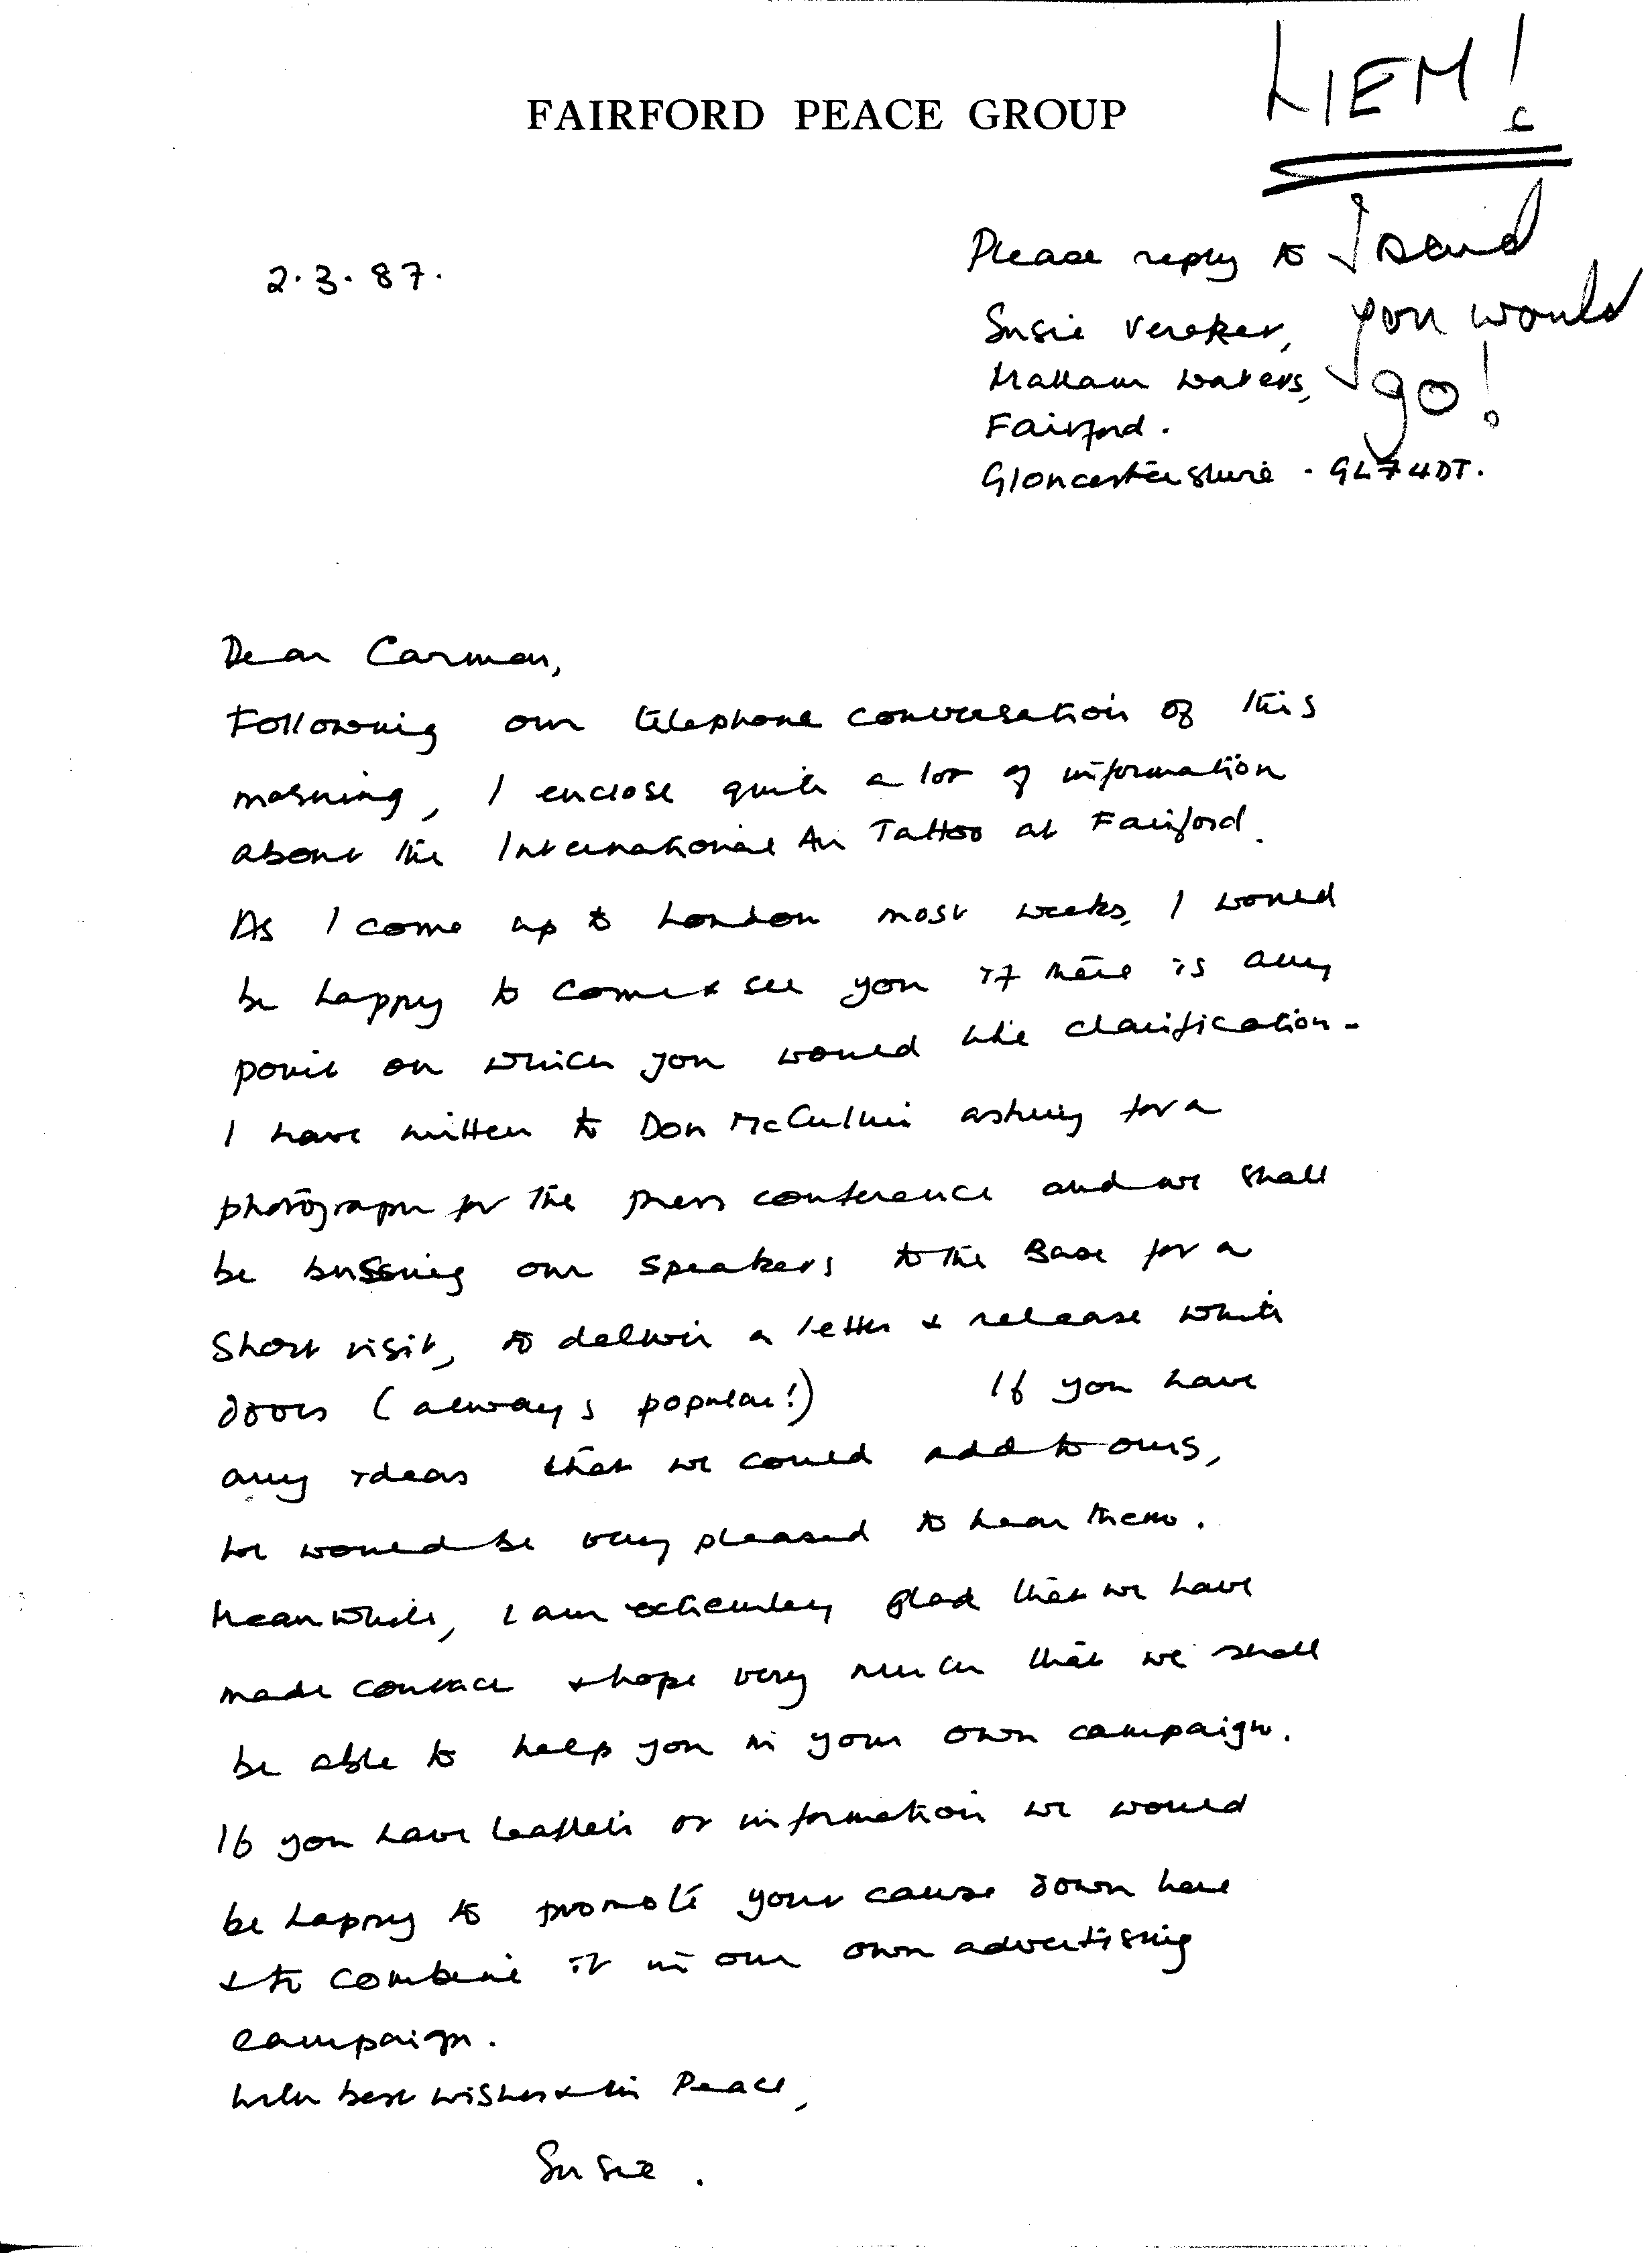 FAIRFORD PEACE GROUP
LIEM!
I said
you would
go!
2.3.87.
Please reply to
Susie Vereker,
Mallam Waters,
Fairford.
Gloucestershire. GL7 4DT.
Dear Carmen,
Following our telephone conversation of this
morning, I enclose quite a lot of information
about the International Air Tattoo at Fairford.
As I come up to London most weeks, I would
be happy to come & see you if there is any
point on which you would like clarification.
I have written to Don McCullin asking for a
photograph for the press conference and we shall
be bussing our speakers to the Base for a
short visit, to deliver a letter & release white
doves (always popular!) If you have
any ideas that we could add to ours,
we would be very pleased to hear them.
Meanwhile, I am extremely glad that we have
made contact & hope very much that we shall
be able to help you in your own campaign.
If you have leaflets or information we would
be happy to promote your cause down here
& to combine it in our own advertising
campaign.
With best wishes & in Peace,
Susie.